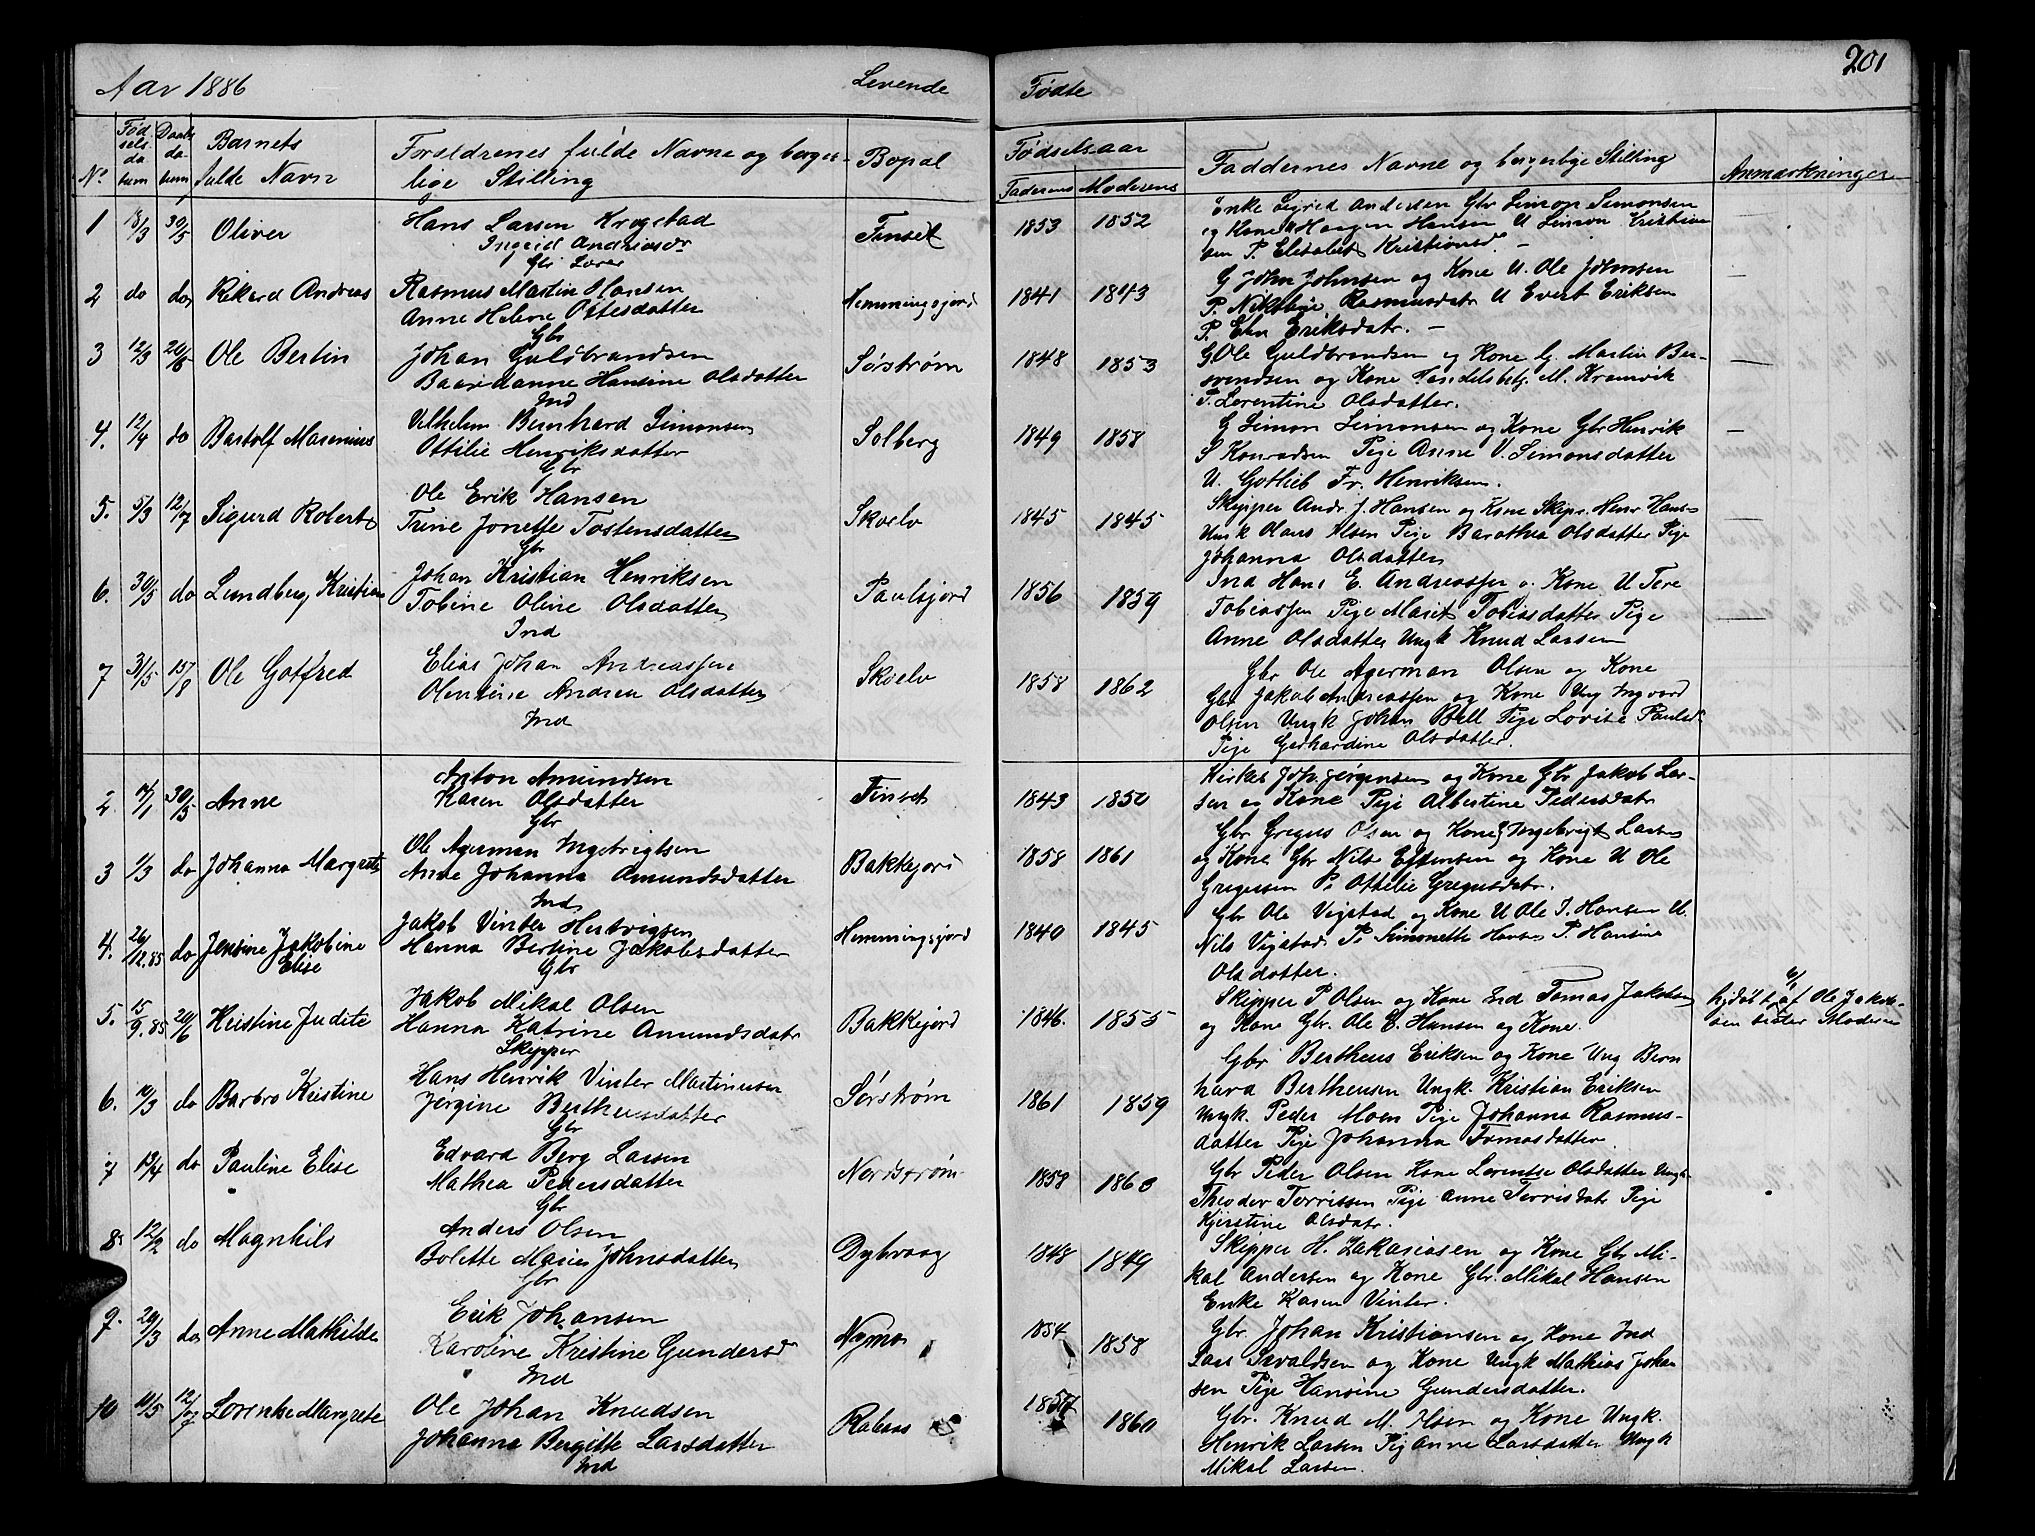 Aar 1886 Levende Fødte 201
No Fødselsdatum Daabsdatum Barnets fulde Navn Forældrenes fulde Navne og borgerlige Stilling Bopæl Fødselsaar Faderens Moderens Faddernes Navne og borgerlige Stilling Anmærkninger
1 18/3 30/5 Oliver
Hans Larsen Krogstad
Ingrid Andreasdr
Finset 1853 1852
Enke Sigrid Andersen Gbr Simon Simonsen
og Kone Haagen Hansen U Simon Kristian
sen P. Elisabet Kristiansd. –
2 do do Rikard Andreas
Rasmus Martin Hansen
Anne Helene Ottesdatter
Gbr
Hemmingsjord 1841 1843
G John Johnsen og Kone U. Ole Johnsen
P. Rasmusdatr U Evert Eriksen
P. Elen Eriksdatr. –
3 12/3 20/6 Ole Bertin
Johan Guldbrandsen
Hansine Olsdatter
Ind
Sørstrøm 1848 1853
G Ole Guldbrandsen og Kone G. Martin Ber-
svendsen og Kone Handelsbetj. M. Kramvik
P. Lorentine Olsdatter.
4. 12/4 do Bastolf Marenius
Vilhelm Bernhard Simonsen
Ottilie Henriksdatter
Gbr
Solberg 1849 1858
G Simon Simonsen og Kone Gbr Henrik
S Konradsen Pige Anne V. Simonsdatter
U. Gotlieb Fr. Henriksen.
5. 5/3 12/7 Sigurd Robert
Ole Erik Hansen
Trine Jonette Tostensdatter
Gbr
Skoelv 1845 1845
Skipper Andr. J. Hansen og Kone Skipr. Henr Hans-
Ungk Hans Olsen Pige Barothea Olsdatter Pige
Johanna Olsdatter
6. 30/5 do Lundberg Kristian
Johan Kristian Henriksen
Tobine Oline Olsdatter
Ind
Paulsfjord 1856 1859
Ind Hans E. Andreassen o. Kone U Tere
Tobiassen Pige Marit Tobiasdatter Pige
Anne Olsdatter Ungk Knud Larsen
7 31/5 15/8 Ole Gotfred
Elias Johan Andreassen
Olentine Andrea Olsdatter
Ind
Skoelv 1858 1862
Gbr Ole Agerman Olsen og Kone
Gbr Jakob Andreassen og Kone Ung Ingvard
Olsen Ungk Johan Bell Pige Lovise Paulsd.
Pige Gerhardine Olsdatter.
2. 17/1 30/5 Anne
Anton Amundsen
Karen Olsdatter
Gbr
Finset 1843 1850
Kirkes Joh. Jørgensen og Kone Gbr Jakob Lar-
sen og Kone Pige Albertine Pedersdatr
3 1/3 do Johanna Margrete
Ole Agerman Ingebrigtsen
Anne Johanna Amundsdatter
Ind
Bakkejord 1858 1861
Gbr Gregus Olsen og Kone Ingebrigt Larsen
og Kone Gbr Nils Eftensen og Kone U Ole
Gregussen P. Ottilie Gregusdatr.
4. 26/12.85 do Jensine Jakobine
Elise
Jakob Vinter Hertvigsen
Hanna Bertine Jakobsdatter
Gbr
Hemmingsjord 1840 1845
Gbr Ole Vigstad og Kone U Ole J. Hansen U.
Nils Vigstad P. Simonette Hansen P. Hansine
Olsdatter.
5. 15/9.85 20/6 Kristine Judite
Jakob Mikal Olsen
Hanna Katrine Amundsdatr
Skipper
Bakkejord 1846. 1855
Skipper P Olsen og Kone Ind Tomas Jakobsen
og Kone Gbr. Ole E. Hansen og Kone.
hjdøbt 6/1 af Ole Jakob-
sen Moderen
6. 10/3 do Barbro Kristine
Hans Henrik Vinter Martinusen
Jørgine Bertheusdatter
Gbr
Sørstrøm 1861 1859
Gbr Bertheus Eriksen og Kone Ung Bern
hard Bertheusen Ungk Kristian Eriksen
Ungk. Peder Moen Pige Johanna Rasmus-
datter Pige Johanna Tomasdatter.
7 19/4 do Pauline Elise
Edvard Berg Larsen
Mathea Pedersdatter
Gbr
Nordstrøm 1858 1860
Gbr Peder Olsen Kone Lorentse Olsdatter Ungk.
Theodor Torrissen Pige Anne Torrisdatr Pige
Kjerstine Olsdatr.
8. 12/2 do Magnhild
Anders Olsen
Bolette Marie Johnsdatter
Gbr
Dybvaag 1848 1849
Skipper H. Zakariasen og Kone Gbr Mi-
kal Andersen og Kone Gbr. Mikal Hansen
Enke Karen Vinter.
9. 29/3 do Anne Mathilde
Erik Johansen
Karoline Kristine Gundersdr
Ind
Nymo 1854 1858
Gbr. Johan Kristiansen og Kone Ind
Lars Osvaldsen og Kone Ungk Mathias Johan
sen Pige Hansine Gundersdatter.
10 11/5 12/7 Lorentse Margrete
Ole Johan Knudsen
Johanna Bergitte Larsdatter
Ind
Rabaas 1857 1860
Gbr. Knud M. Olsen og Kone Ungk.
Henrik Larsen Pig Anne Larsdatter Ungk
Mikal Larsen.